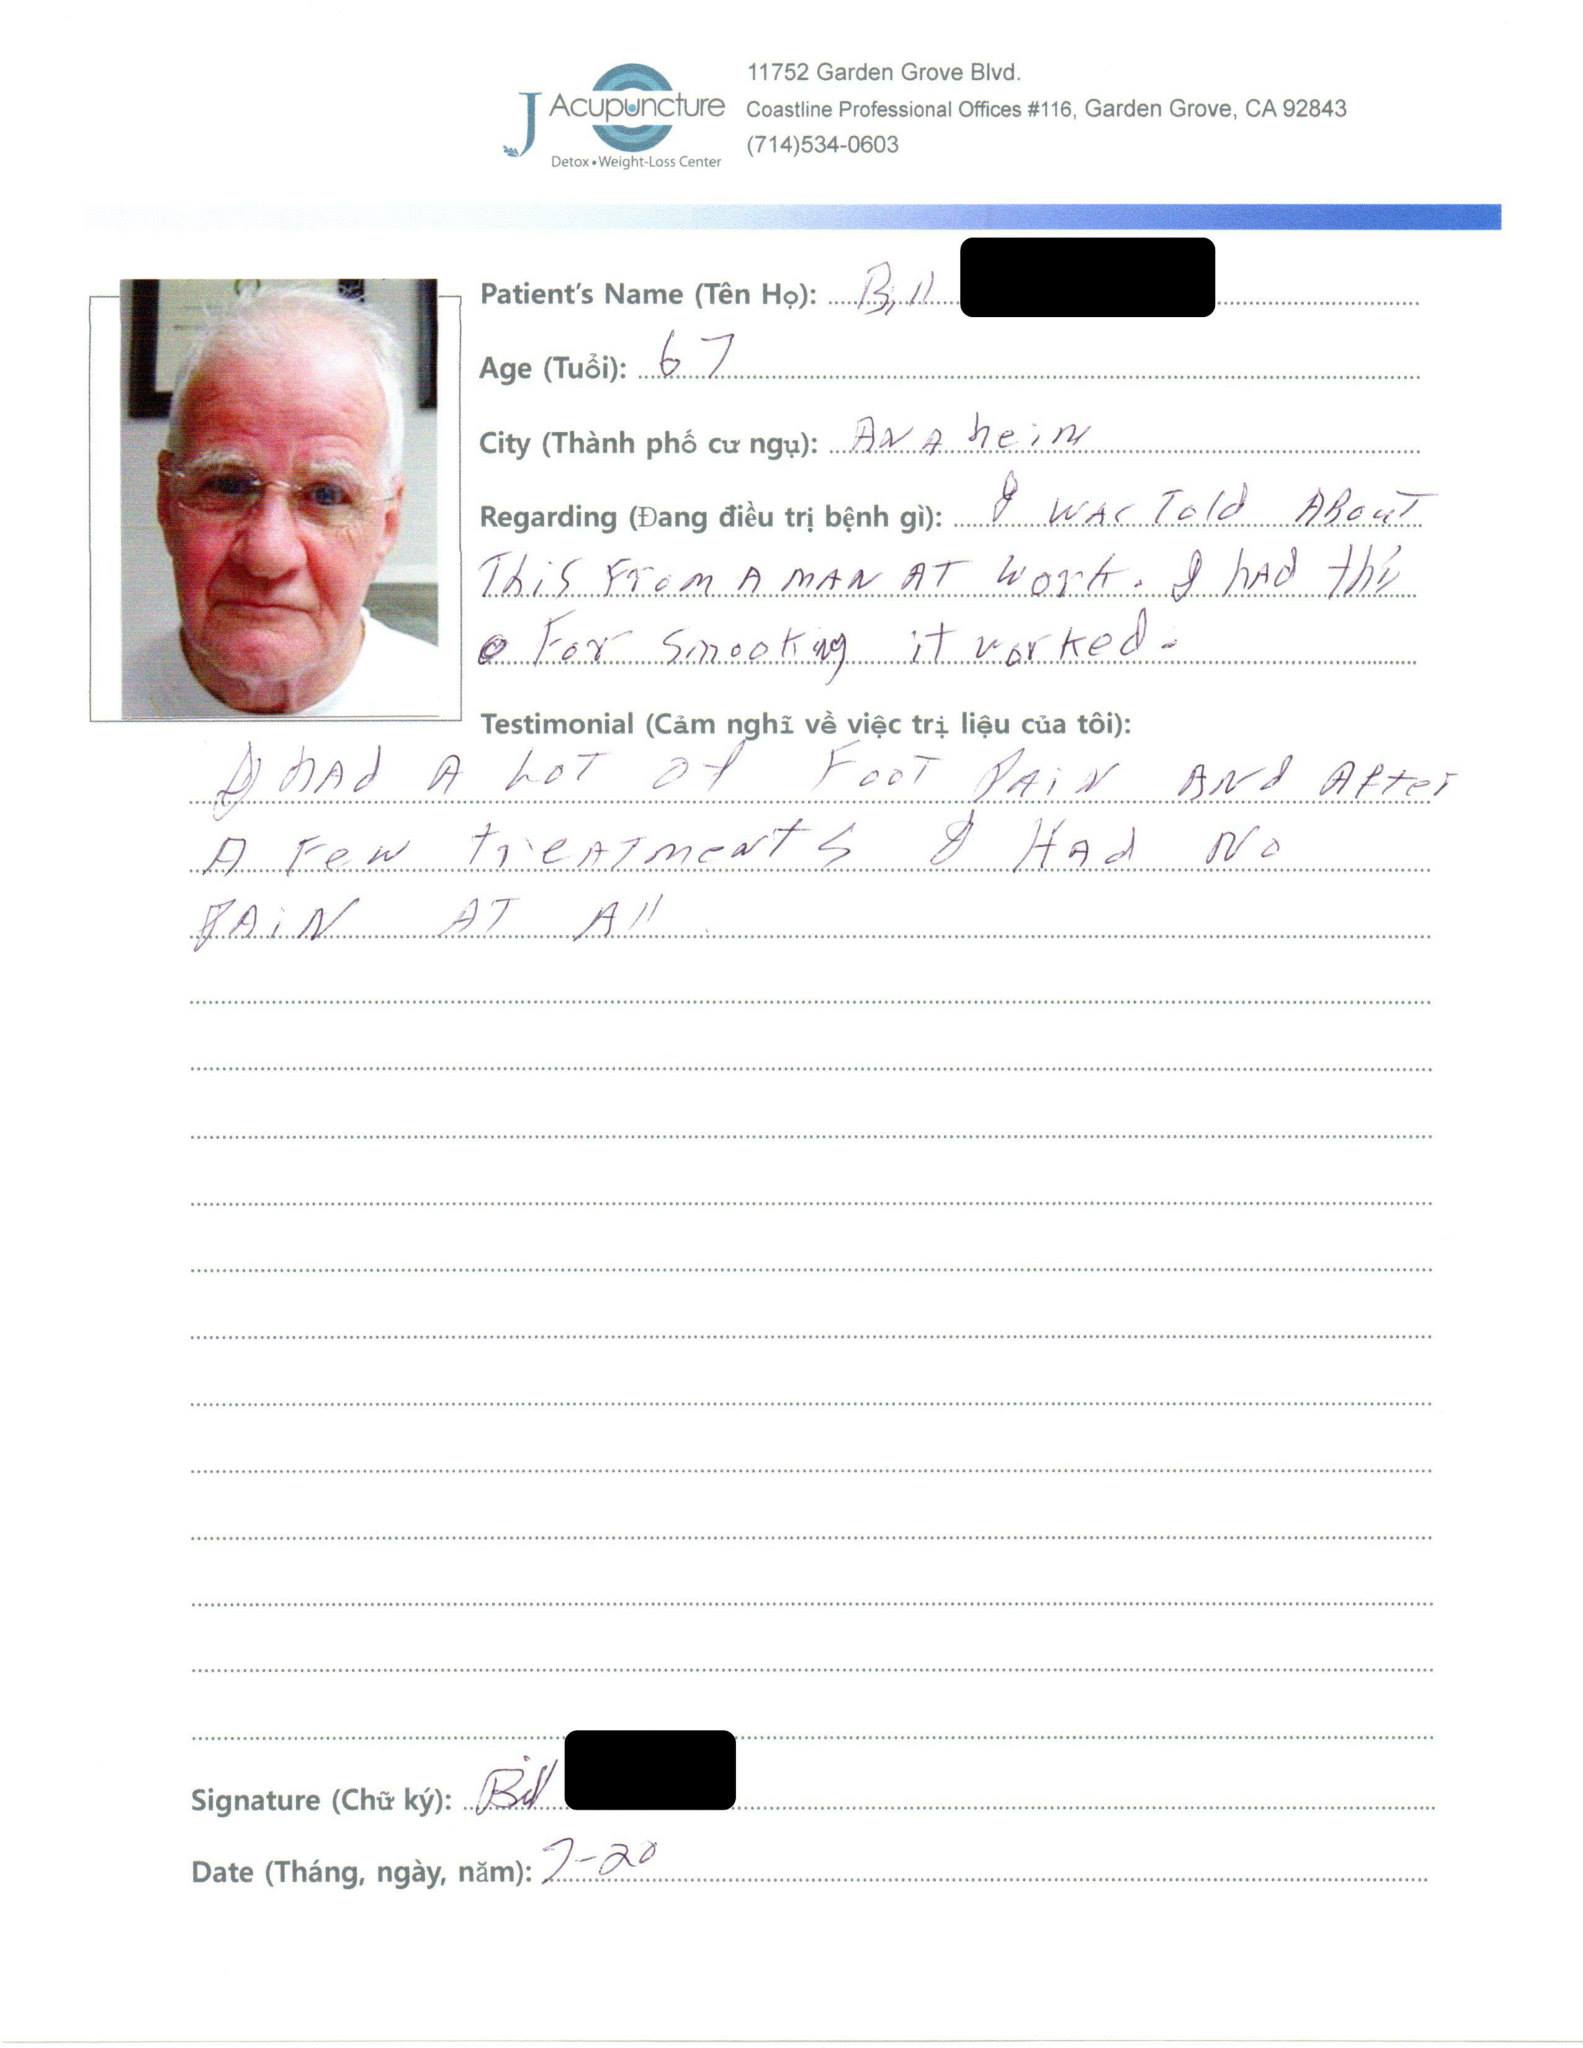 J Acupuncture
Detox • Weight-Loss Center
11752 Garden Grove Blvd.
Coastline Professional Offices #116, Garden Grove, CA 92843
(714)534-0603
Patient's Name (Tên Họ): Bill
Age (Tuổi): 67
City (Thành phố cư ngụ): ANAheiN
Regarding (Đang điều trị bệnh gì): I WAS Told ABouT
This From A MAN AT work. I hAd thi
For Smooking it worked.
Testimonial (Cảm nghĩ về việc trị liệu của tôi):
I hAd A LoT of FooT PAiN ANd After
A Few treATmentS I HAd No
PAiN AT All
Signature (Chữ ký): Bill
Date (Tháng, ngày, năm): 7-20